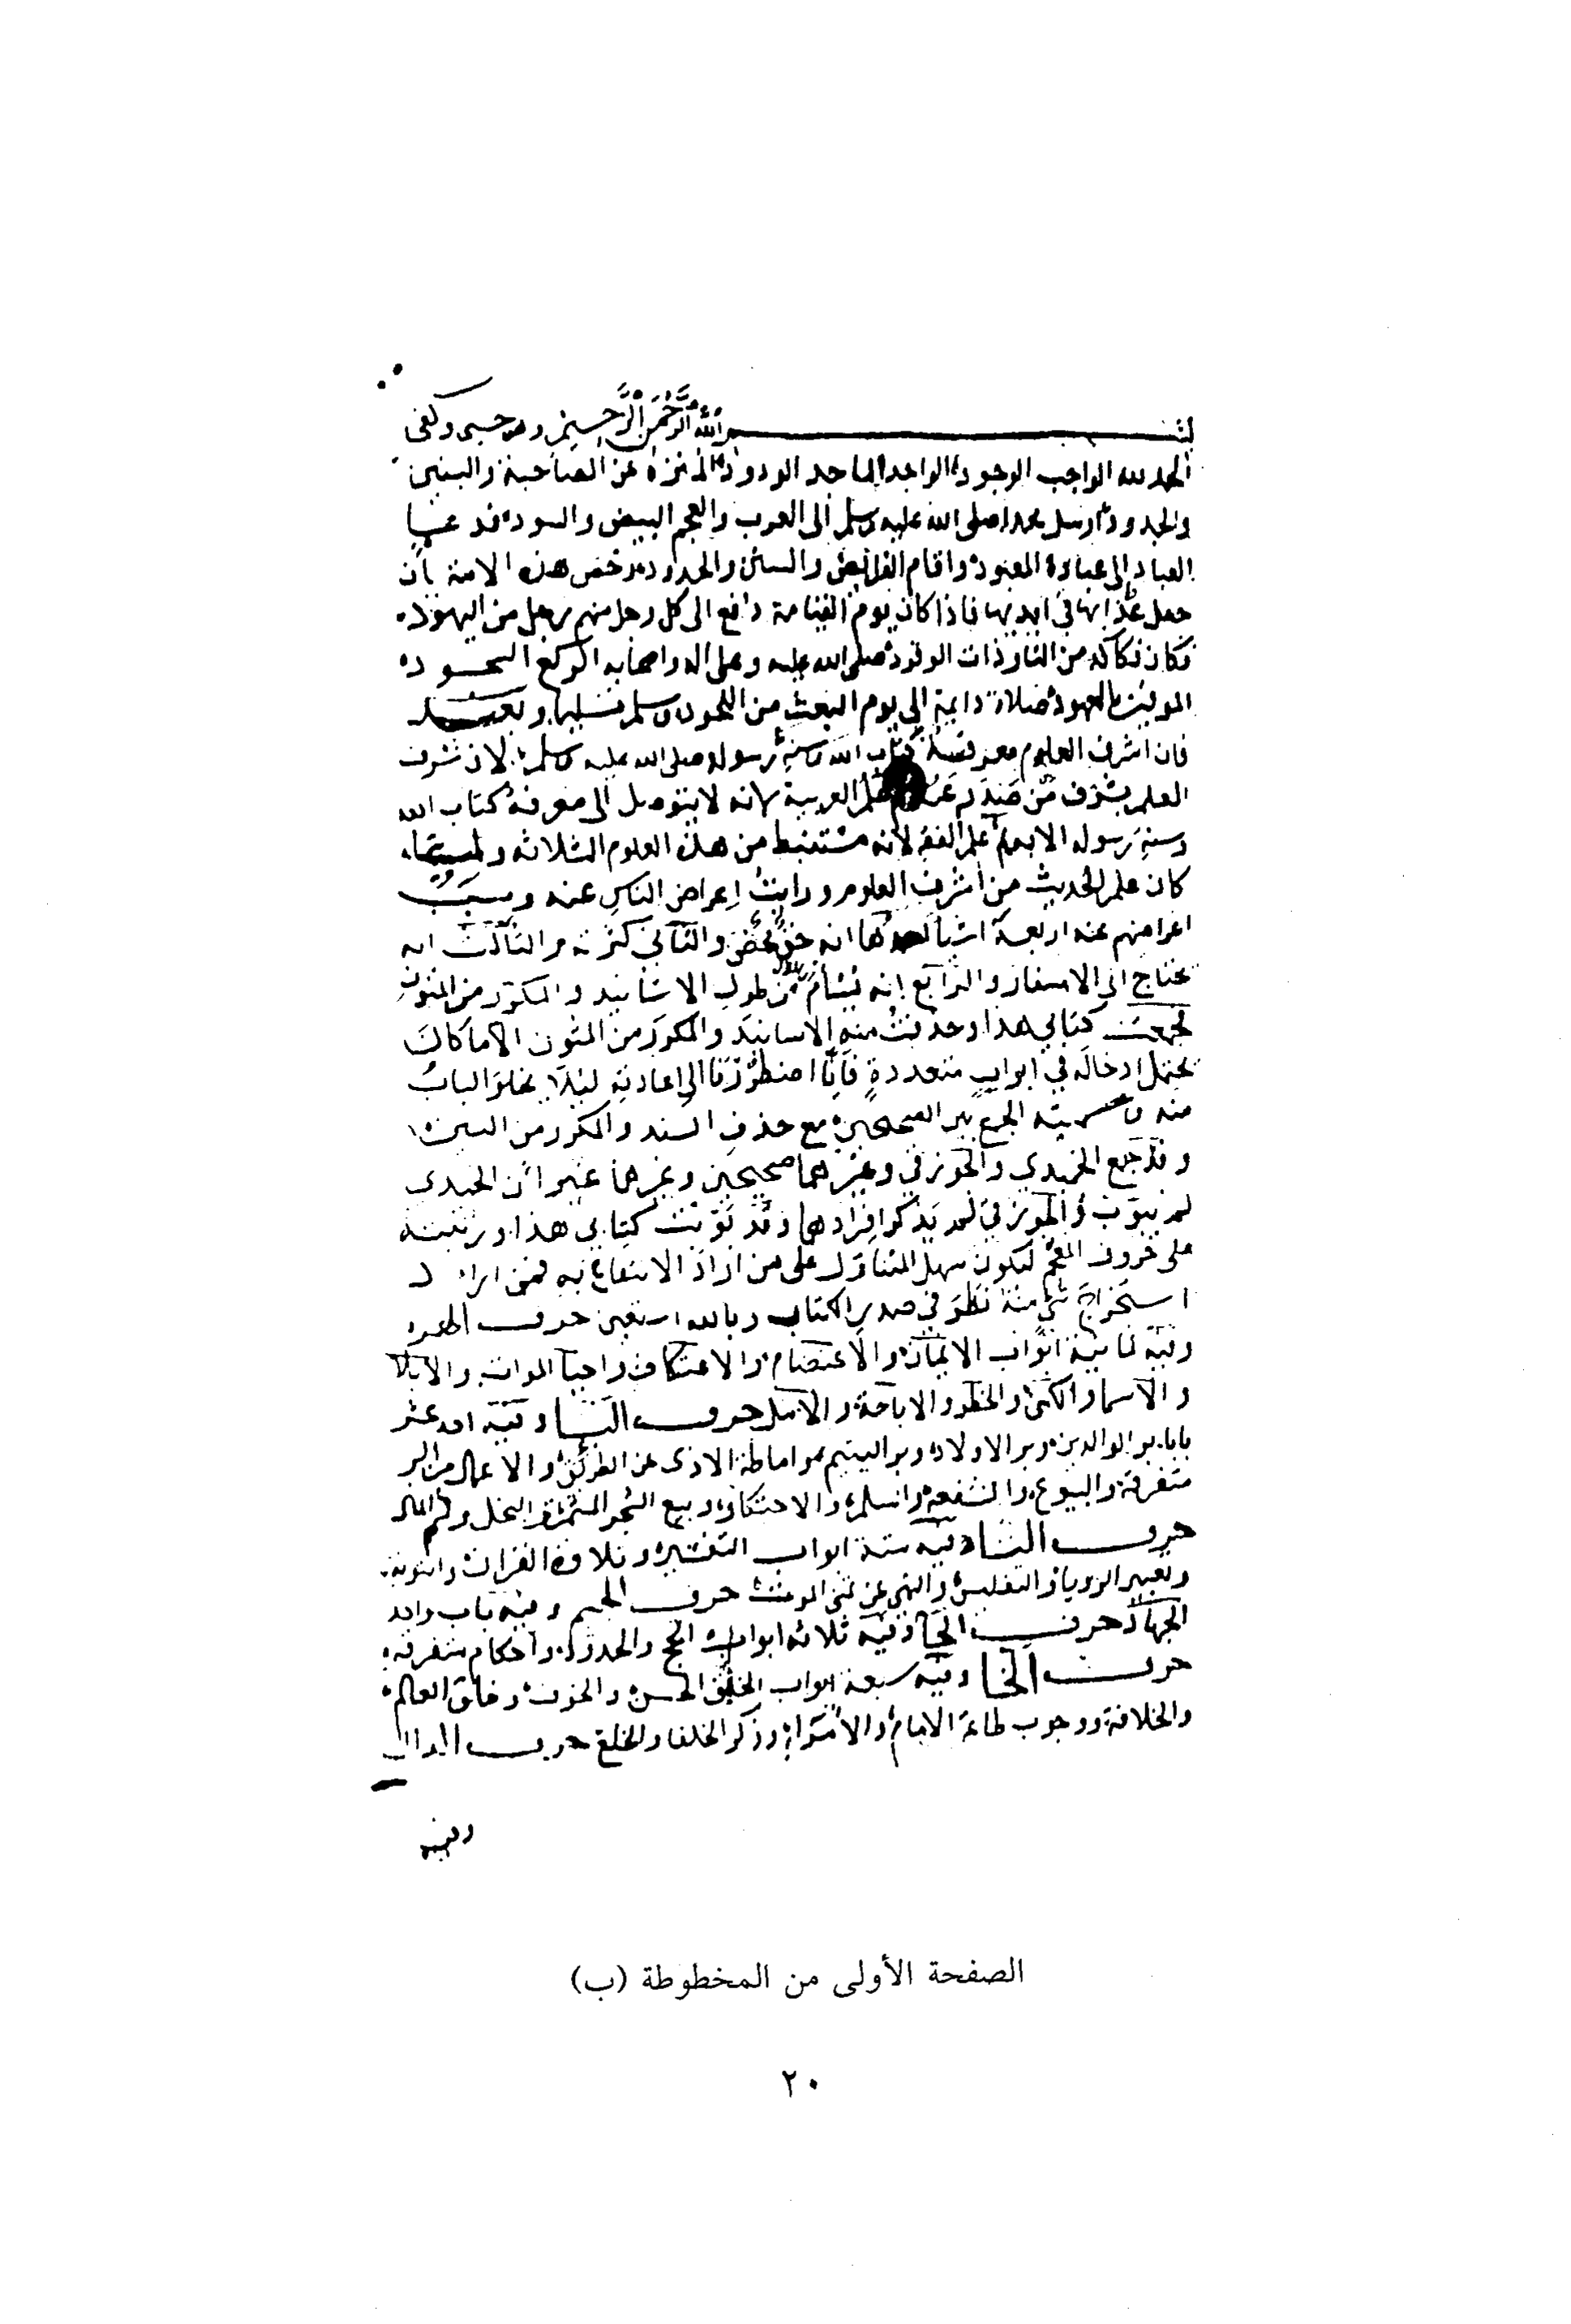 بسم الله الرحمن الرحيم وهو حسبي وكفى
الحمد لله الواجب الوجود الواحد الماجد الودود المنزه عن الصاحبة والبنين
والجدود ارسل محمدا صلى الله عليه وسلم الى العرب والعجم البيض والسود فدعا
العباد الى عبادة المعبود واقام الفرائض والسنن والحدود وخص هذه الامة بان
جعل عذابها في ايديها فاذا كان يوم القيامة دافع الى كل رجل منهم رجل من اليهود
فكان فكاكه من النار ذات الوقود صلى الله عليه وعلى اله واصحابه الركع السجود
الموفين بالعهود صلاة دايمة الى يوم البعث من اللحود وسلم تسليما وبعد
فان اشرف العلوم معرفة كتاب الله وسنة رسوله صلى الله عليه وسلم لان شرف
العلم بشرف من صدر عنه علم العربية لانه لا يتوصل الى معرفة كتاب الله
وسنة رسوله الا به علم الفقه لانه مستنبط من هذه العلوم الثلاثة ولما
كان علم الحديث من اشرف العلوم ورايت اعراض الناس عنه وسبب
اعراضهم عنه اربعة اشيا احدها انه حق محض والثاني كثرته والثالث انه
يحتاج الى الاسفار والرابع انه يسأم من طول الاسانيد والمكرر من المتون
فجمعت كتابي هذا وحذفت منه الاسانيد والمكرر من المتون الا ما كان
يحتمل ادخاله في ابواب متعددة فانا اضطررنا الى اعادته ليلا يخلو الباب
منه وسميته الجمع بين الصحيحين مع حذف السند والمكرر من البين
وقد جمع الحميدي والجوزقي وغيرهما صحيحين وغيرها غير ان الحميدي
لم يبوب والجوزقي لم يذكر افرادهما وقد بوبت كتابي هذا ورتبته
على حروف المعجم ليكون سهل المتناول على من اراد الانتفاع به فمن اراد
استخراج شي منه نظر في صدر الكتاب وبالله استعين حرف الهمزة
وفيه ثمانية ابواب الايمان والاعتصام والاعتكاف واحيا الموات والايلا
والاسما والكنى والحظر والاباحة والاكل حرف البا وفيه احد عشر
بابا بر الوالدين وبر الاولاد وبر اليتيم واماطة الاذى عن الطريق والاعمال من البر
متفرقة والبيوع والشفعة والسلم والاحتكار وبيع الشجر المثمر والنخل
حرف التا وفيه ستة ابواب التفسير وتلاوة القران والتوبة
وتعبير الرويا والتفليس والنهي عن تمني الموت حرف الجيم وفيه باب واحد
الجهاد حرف الحا وفيه ثلاثة ابواب الحج والحدود واحكام متفرقة
حرف الخا وفيه سبعة ابواب الخلق الحسن والخوف وخلق العالم
والخلافة ووجوب طاعة الامام والامراء وذكر الخلفا والخلع حرف الدال
وفيه
الصفحة الأولى من المخطوطة (ب)
٢٠